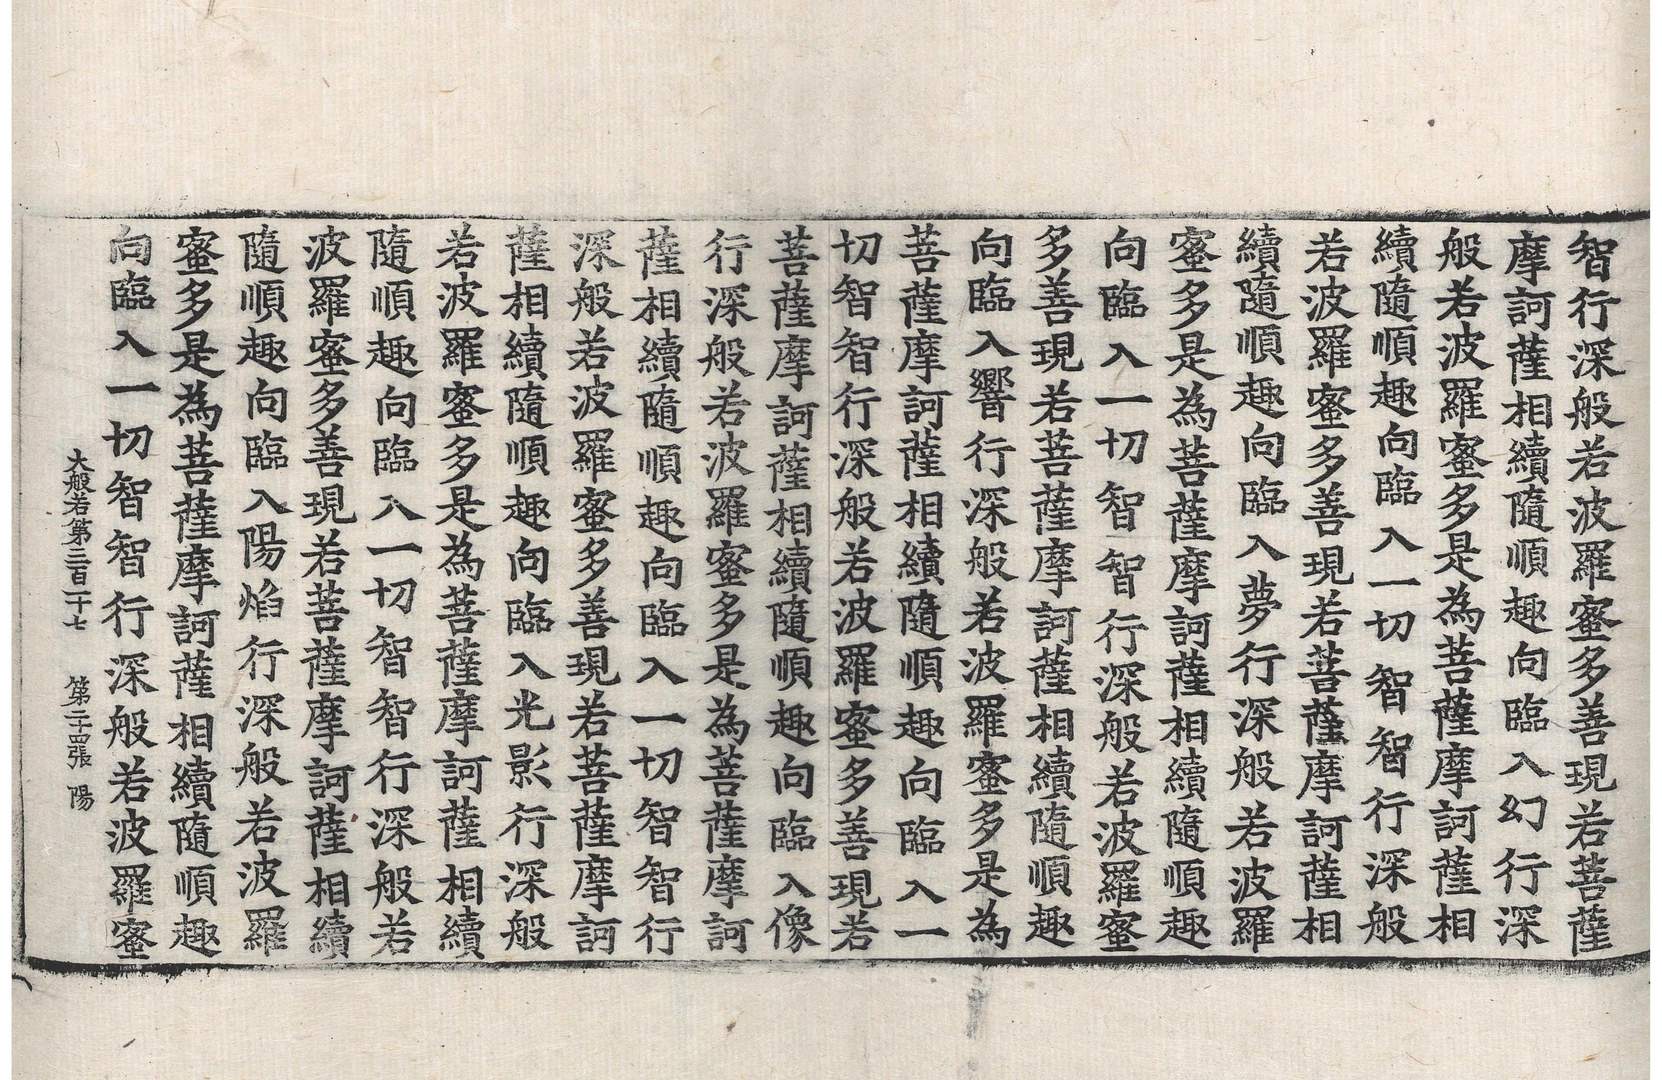 智行深般若波羅蜜多善現若菩薩
摩訶薩相續隨順趣向臨入幻行深
般若波羅蜜多是為菩薩摩訶薩相
續隨順趣向臨入一切智智行深般
若波羅蜜多善現若菩薩摩訶薩相
續隨順趣向臨入夢行深般若波羅
蜜多是為菩薩摩訶薩相續隨順趣
向臨入一切智智行深般若波羅蜜
多善現若菩薩摩訶薩相續隨順趣
向臨入響行深般若波羅蜜多是為
菩薩摩訶薩相續隨順趣向臨入一
切智智行深般若波羅蜜多善現若
菩薩摩訶薩相續隨順趣向臨入像
行深般若波羅蜜多是為菩薩摩訶
薩相續隨順趣向臨入一切智智行
深般若波羅蜜多善現若菩薩摩訶
薩相續隨順趣向臨入光影行深般
若波羅蜜多是為菩薩摩訶薩相續
隨順趣向臨入一切智智行深般若
波羅蜜多善現若菩薩摩訶薩相續
隨順趣向臨入陽焰行深般若波羅
蜜多是為菩薩摩訶薩相續隨順趣
向臨入一切智智行深般若波羅蜜
大般若第三百一十七 第二十四張 陽